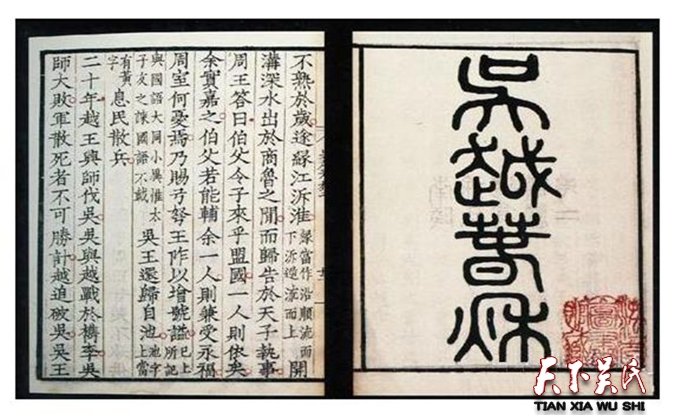 吳越春秋
不熟於歲遂緣江泝淮緣當作沿順流而下泝逆流而上開
溝深水出於商魯之閒而歸告於天子執事
周王答曰伯父令子來乎盟國一人則依矣
余實嘉之伯父若能輔余一人則兼受永福
周室何憂焉乃賜弓弩王阼以增號謚已上所記
與國語大同小異惟太子友之諫國語不載吳王還歸自池池字上當
有黃字息民散兵
二十年越王興師伐吳吳與越戰於檇李吳
師大敗軍散死者不可勝計越追破吳吳王
天下吴氏
TIAN XIA WU SHI